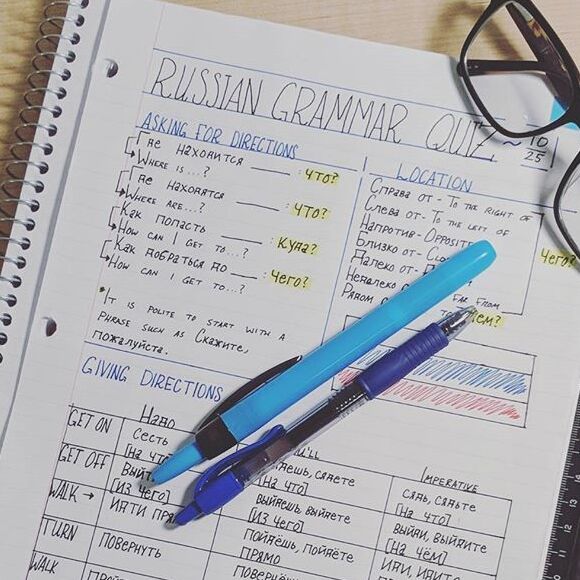 RUSSIAN GRAMMAR QUIZ ~ 10/25
ASKING FOR DIRECTIONS
Где находится ___ : что?
WHERE IS ...?
Где находятся ___ : что?
WHERE ARE...?
Как попасть ___ : куда?
HOW CAN I GET TO...?
Как добраться до ___ : чего?
HOW CAN I GET TO...?
*IT IS POLITE TO START WITH A
PHRASE SUCH AS Скажите,
пожалуйста.
LOCATION
Справа от - TO THE RIGHT OF
Слева от - TO THE LEFT OF
Напротив - OPPOSITE
Близко от -
Далеко от -
Недалеко FAR FROM
Рядом TO
чего?
чем?
GIVING DIRECTIONS
Надо
IMPERATIVE
GET ON
Сесть
[на что]
сядете
[на что]
Сядь, сядьте
[на что]
GET OFF
Выйти
[из чего]
Выйдешь, выйдете
[из чего]
Выйди, выйдите
[на чём]
WALK →
Идти
Пойдёшь, пойдёте
прямо
Иди, идите
TURN
Повернуть
WALK